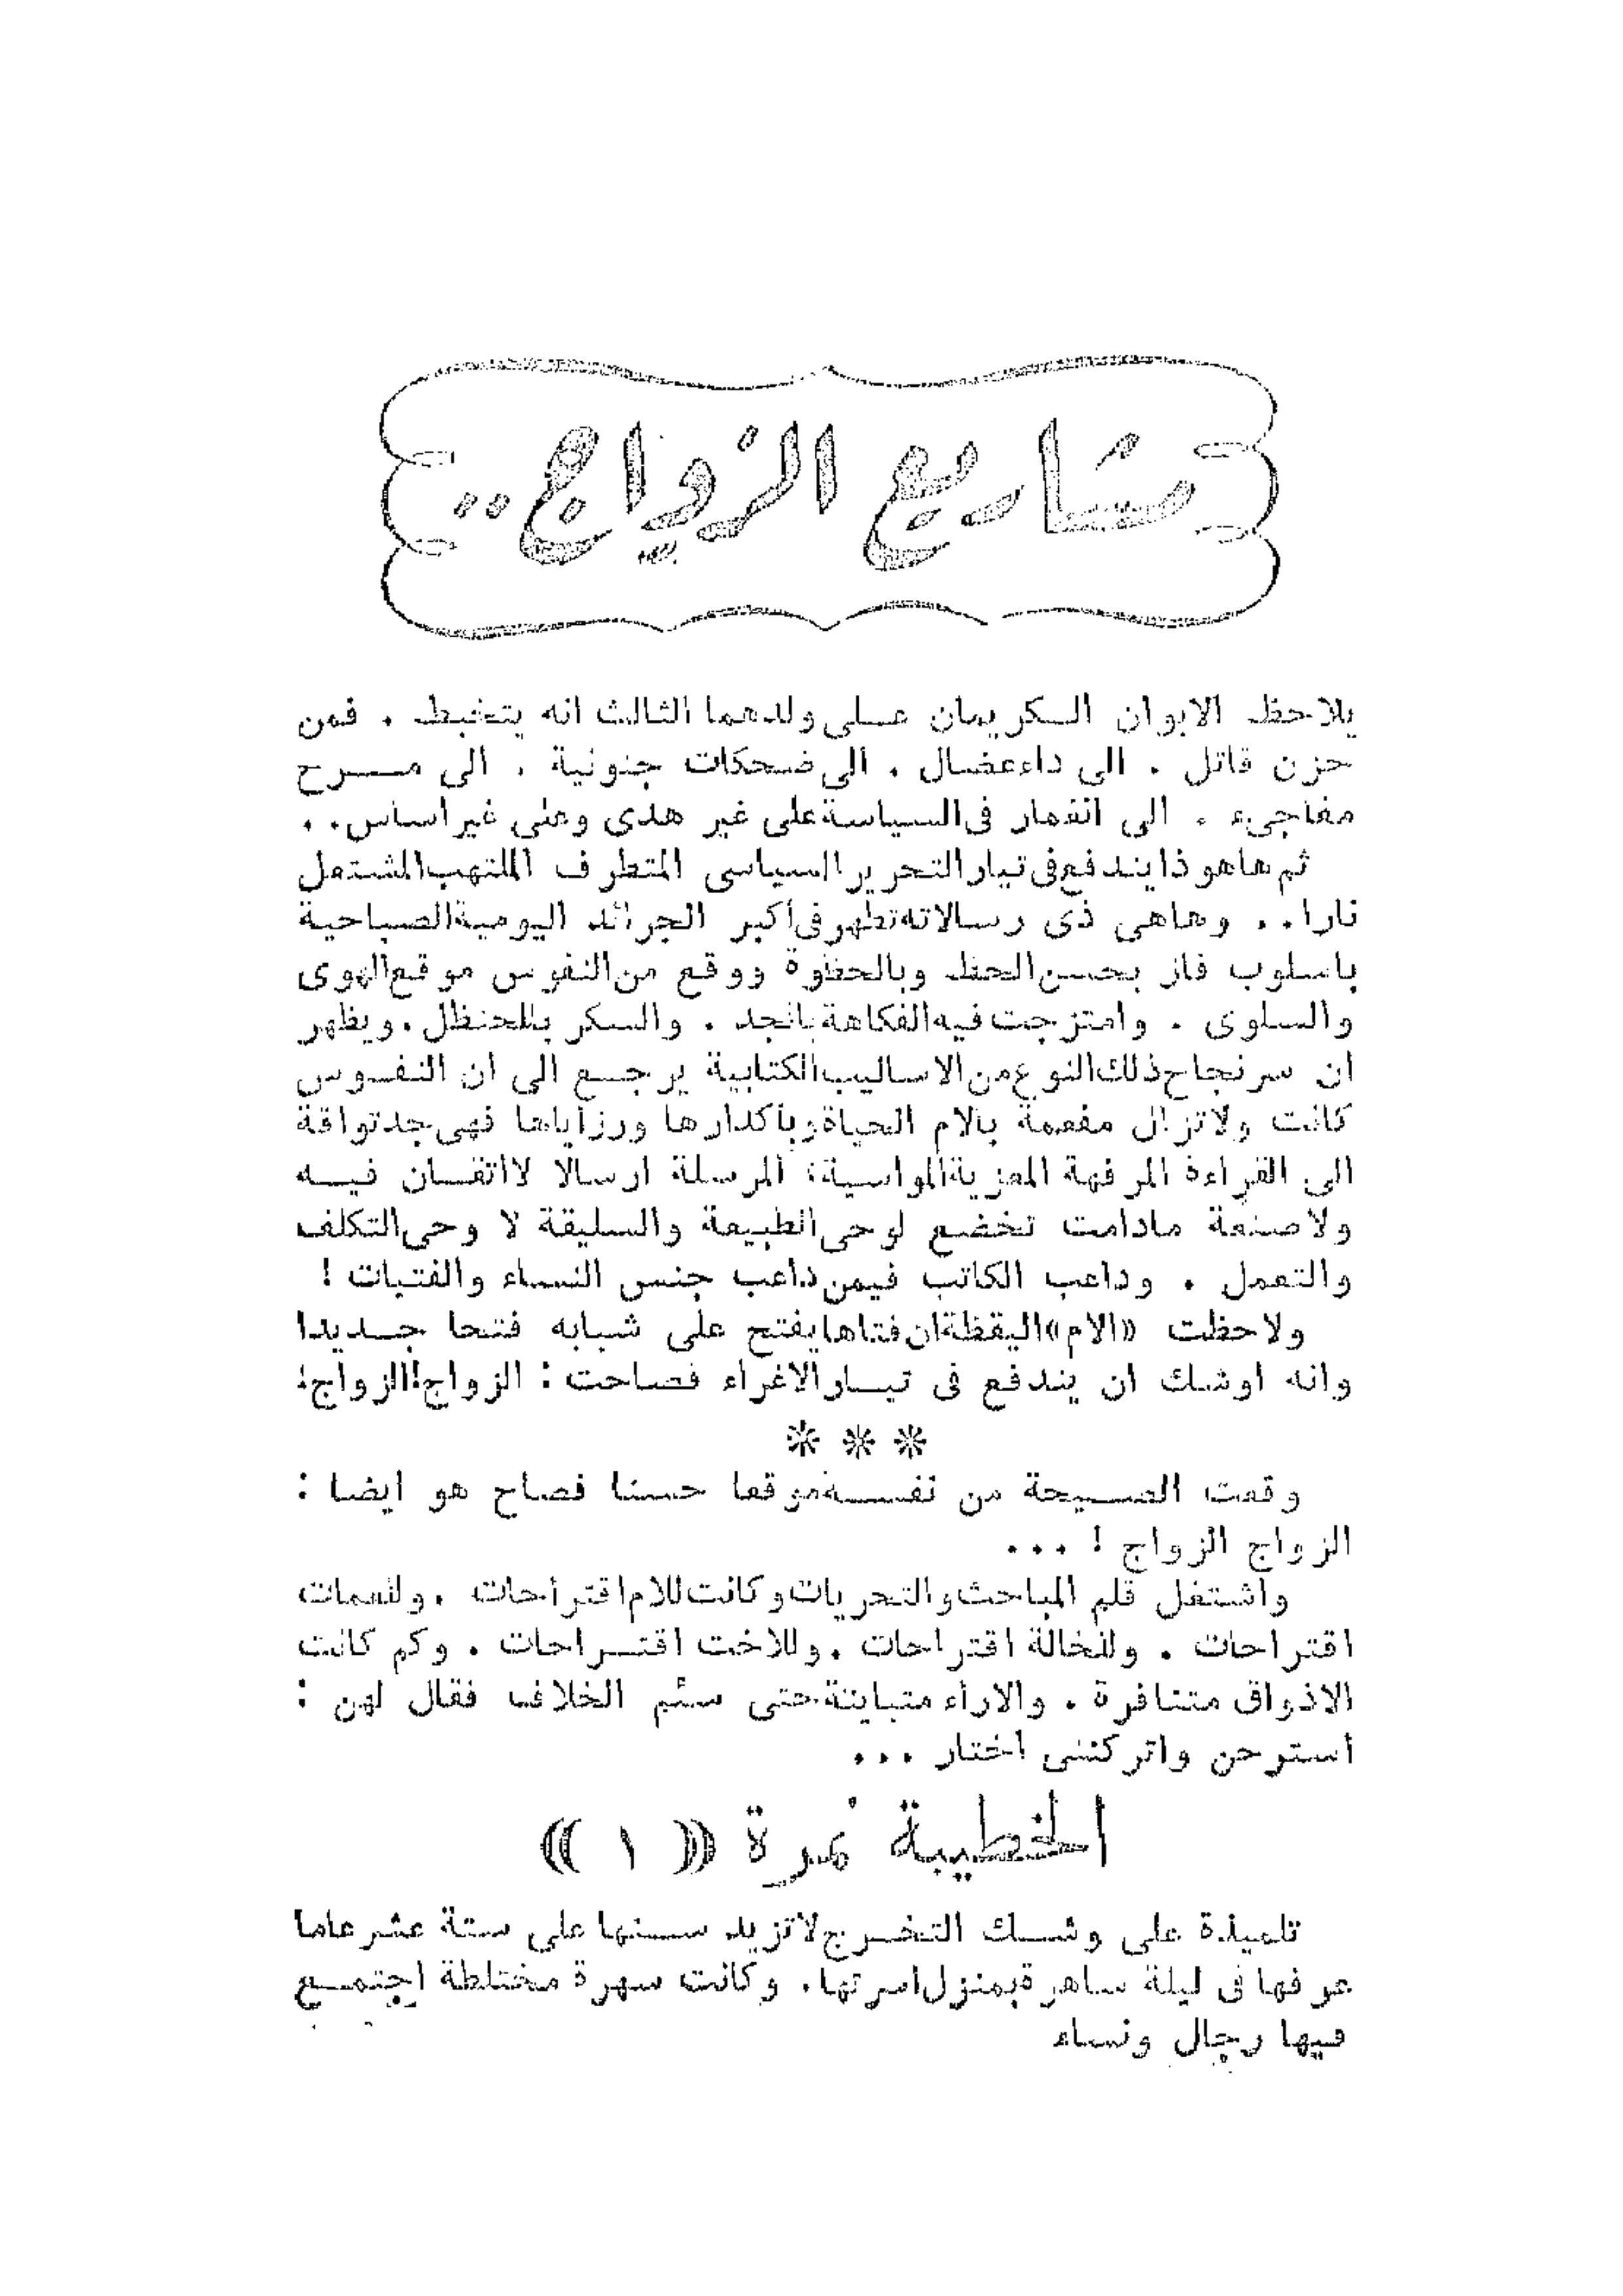 مشاريع الزواج..
يلاحظ الابوان الكريمان على ولدهما الثالث انه يتخبط . فمن
حزن قاتل . الى داء عضال . الى ضحكات جنونية . الى مرح
مفاجىء . الى انغمار فى السياسة على غير هدى وعلى غير اساس . .
ثم هاهو ذا يندفع فى تيار التحرير السياسى المتطرف الملتهب المشتعل
نارا . . وهاهى ذى رسالاته تظهر فى أكبر الجرائد اليومية الصباحية
باسلوب فاز بحسن الحظ وبالحظوة ووقع من النفوس موقع الهوى
والسلوى . وامتزجت فيه الفكاهة بالجد . والسكر بالحنظل . ويظهر
ان سر نجاح ذلك النوع من الاساليب الكتابية يرجع الى ان النفوس
كانت ولا تزال مفعمة بآلام الحياة وبأكدارها ورزاياها فهى جد تواقة
الى القراءة المرفهة المعزية المواسية ؛ المرسلة ارسالا لا اتقان فيه
ولا صنعة مادامت تخضع لوحى الطبيعة والسليقة لا وحى التكلف
والتعمل . وداعب الكاتب فيمن داعب جنس النساء والفتيات !
ولاحظت «الام» اليقظة ان فتاها يفتح على شبابه فتحا جديدا
وانه اوشك ان يندفع فى تيار الاغراء فصاحت : الزواج! الزواج!
* * *
وقعت الصيحة من نفسه موقعا حسنا فصاح هو ايضا :
الزواج الزواج ! ...
واشتغل قلم المباحث والتحريات وكانت للام اقتراحات . وللعمات
اقتراحات . وللخالة اقتراحات . وللاخت اقتراحات . وكم كانت
الاذواق متنافرة . والاراء متباينة حتى سئم الخلاف فقال لهن :
استرحن واتركننى اختار ...
الخطيبة نمرة « ١ »
تلميذة على وشك التخرج لا تزيد سنها على ستة عشر عاما
عرفها فى ليلة ساهرة بمنزل اسرتها . وكانت سهرة مختلطة اجتمع
فيها رجال ونساء